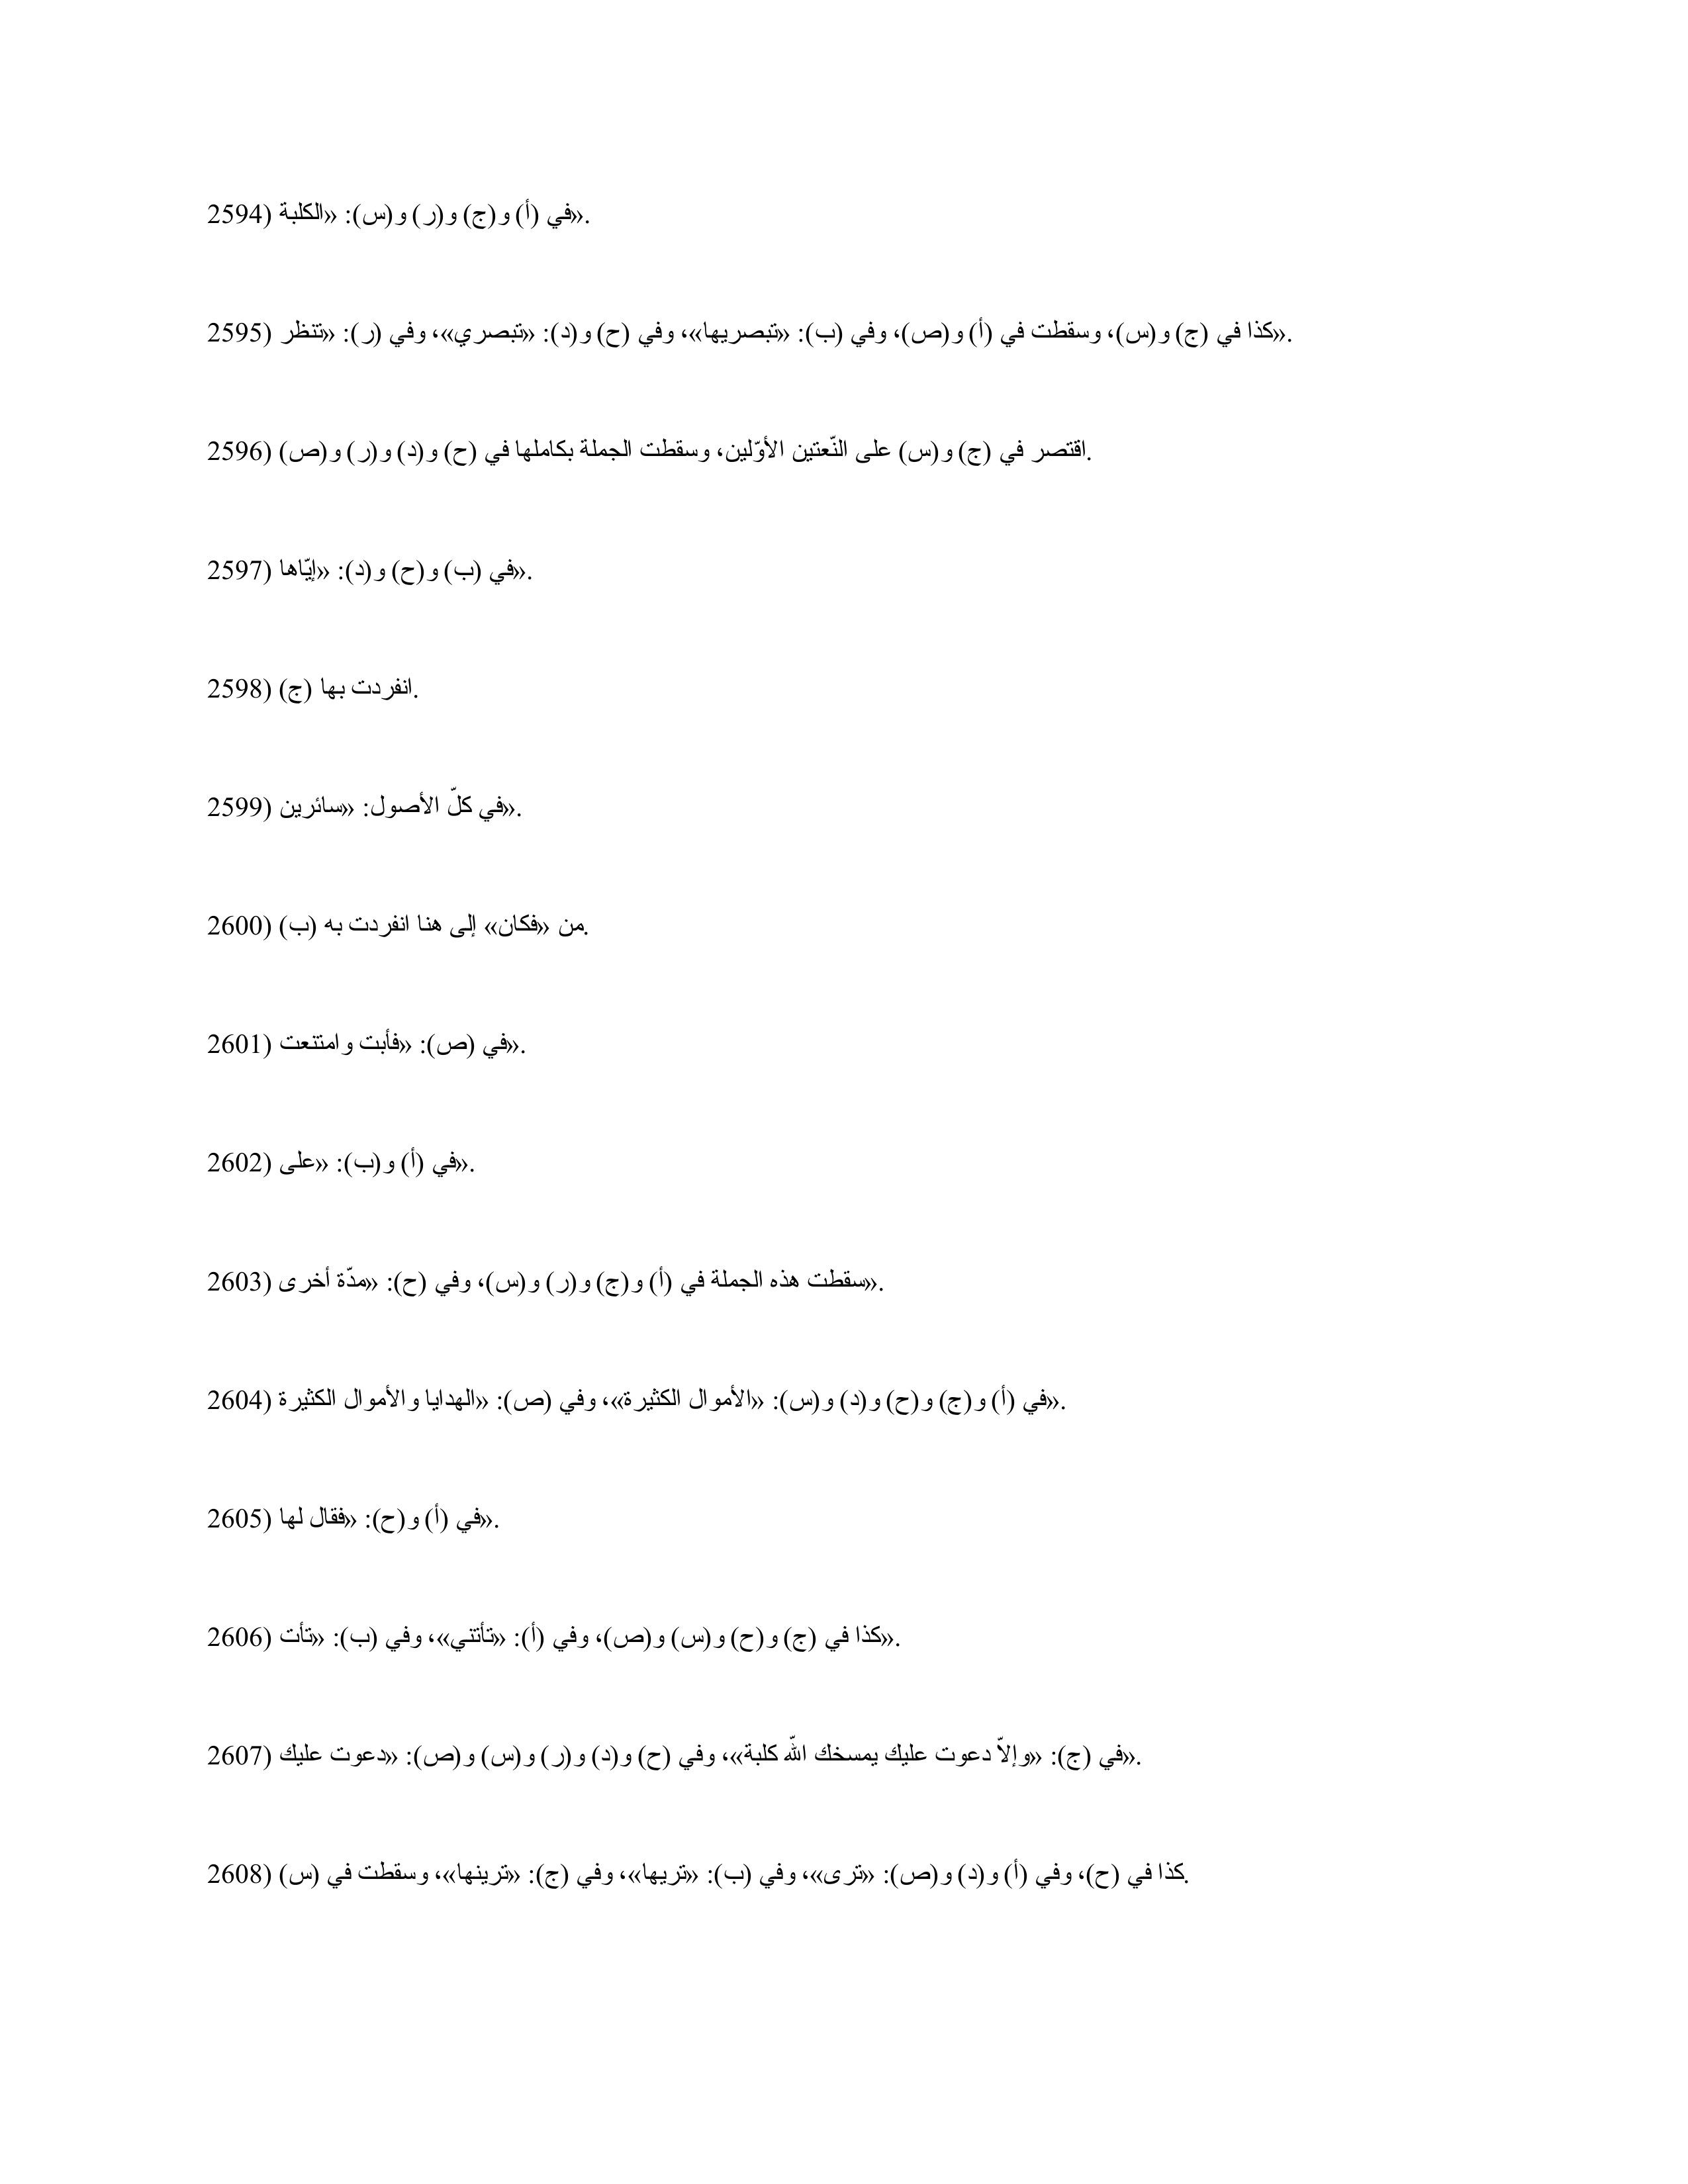 2594) في (أ) و(ج) و(ر) و(س): «الكلبة».
2595) كذا في (ج) و(س)، وسقطت في (أ) و(ص)، وفي (ب): «تبصريها»، وفي (ح) و(د): «تبصري»، وفي (ر): «تنظر».
2596) اقتصر في (ج) و(س) على النّعتين الأوّلين، وسقطت الجملة بكاملها في (ح) و(د) و(ر) و(ص).
2597) في (ب) و(ح) و(د): «إيّاها».
2598) انفردت بها (ج).
2599) في كلّ الأصول: «سائرين».
2600) من «فكان» إلى هنا انفردت به (ب).
2601) في (ص): «فأبت وامتنعت».
2602) في (أ) و(ب): «على».
2603) سقطت هذه الجملة في (أ) و(ج) و(ر) و(س)، وفي (ح): «مدّة أخرى».
2604) في (أ) و(ج) و(ح) و(د) و(س): «الأموال الكثيرة»، وفي (ص): «الهدايا والأموال الكثيرة».
2605) في (أ) و(ح): «فقال لها».
2606) كذا في (ج) و(ح) و(س) و(ص)، وفي (أ): «تأتني»، وفي (ب): «تأت».
2607) في (ج): «وإلاّ دعوت عليك يمسخك اللّه كلبة»، وفي (ح) و(د) و(ر) و(س) و(ص): «دعوت عليك».
2608) كذا في (ح)، وفي (أ) و(د) و(ص): «ترى»، وفي (ب): «تريها»، وفي (ج): «ترينها»، وسقطت في (س).